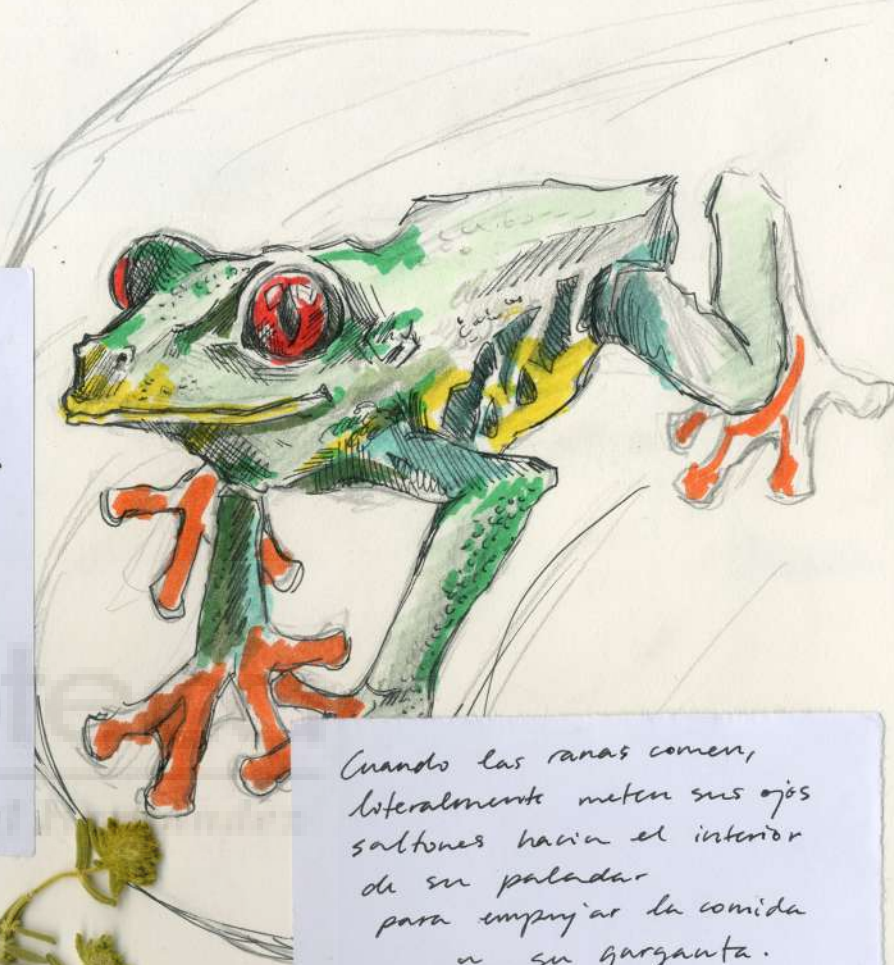 Cuando las ranas comen,
literalmente meten sus ojos
saltones hacia el interior
de su paladar
para empujar la comida
a su garganta.